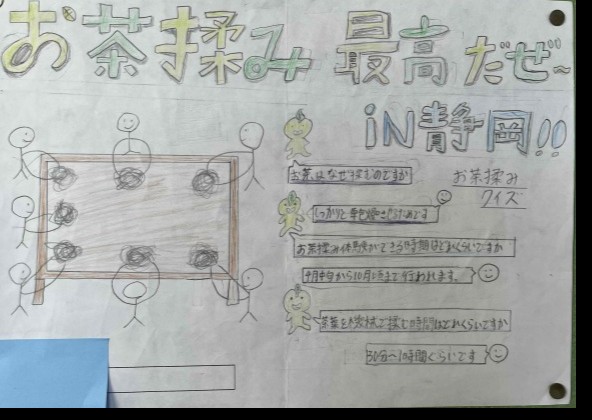 お茶揉み 最高だぜ~
iN静岡!!
お茶揉み
クイズ
お茶はなぜ揉むのですか
しっかりと
お茶揉み体験ができる時期はどれくらいですか
4月中旬から10月頃まで行われます。
茶葉を機械で揉む時間はどれくらいですか
30分~1時間くらいです